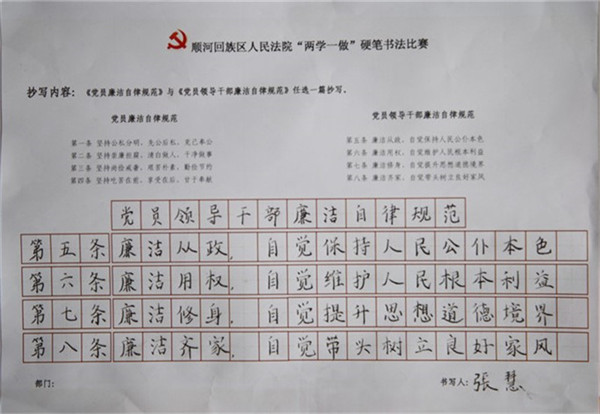 顺河回族区人民法院“两学一做”硬笔书法比赛
抄写内容：《党员廉洁自律规范》与《党员领导干部廉洁自律规范》任选一篇抄写。
党员廉洁自律规范
第一条 坚持公私分明，先公后私，克己奉公
第二条 坚持崇廉拒腐，清白做人，干净做事
第三条 坚持尚俭戒奢，艰苦朴素，勤俭节约
第四条 坚持吃苦在前，享受在后，甘于奉献
党员领导干部廉洁自律规范
第五条 廉洁从政，自觉保持人民公仆本色
第六条 廉洁用权，自觉维护人民根本利益
第七条 廉洁修身，自觉提升思想道德境界
第八条 廉洁齐家，自觉带头树立良好家风
党员领导干部廉洁自律规范
第五条廉洁从政，自觉保持人民公仆本色
第六条廉洁用权，自觉维护人民根本利益
第七条廉洁修身，自觉提升思想道德境界
第八条廉洁齐家，自觉带头树立良好家风
部门：
书写人：张慧